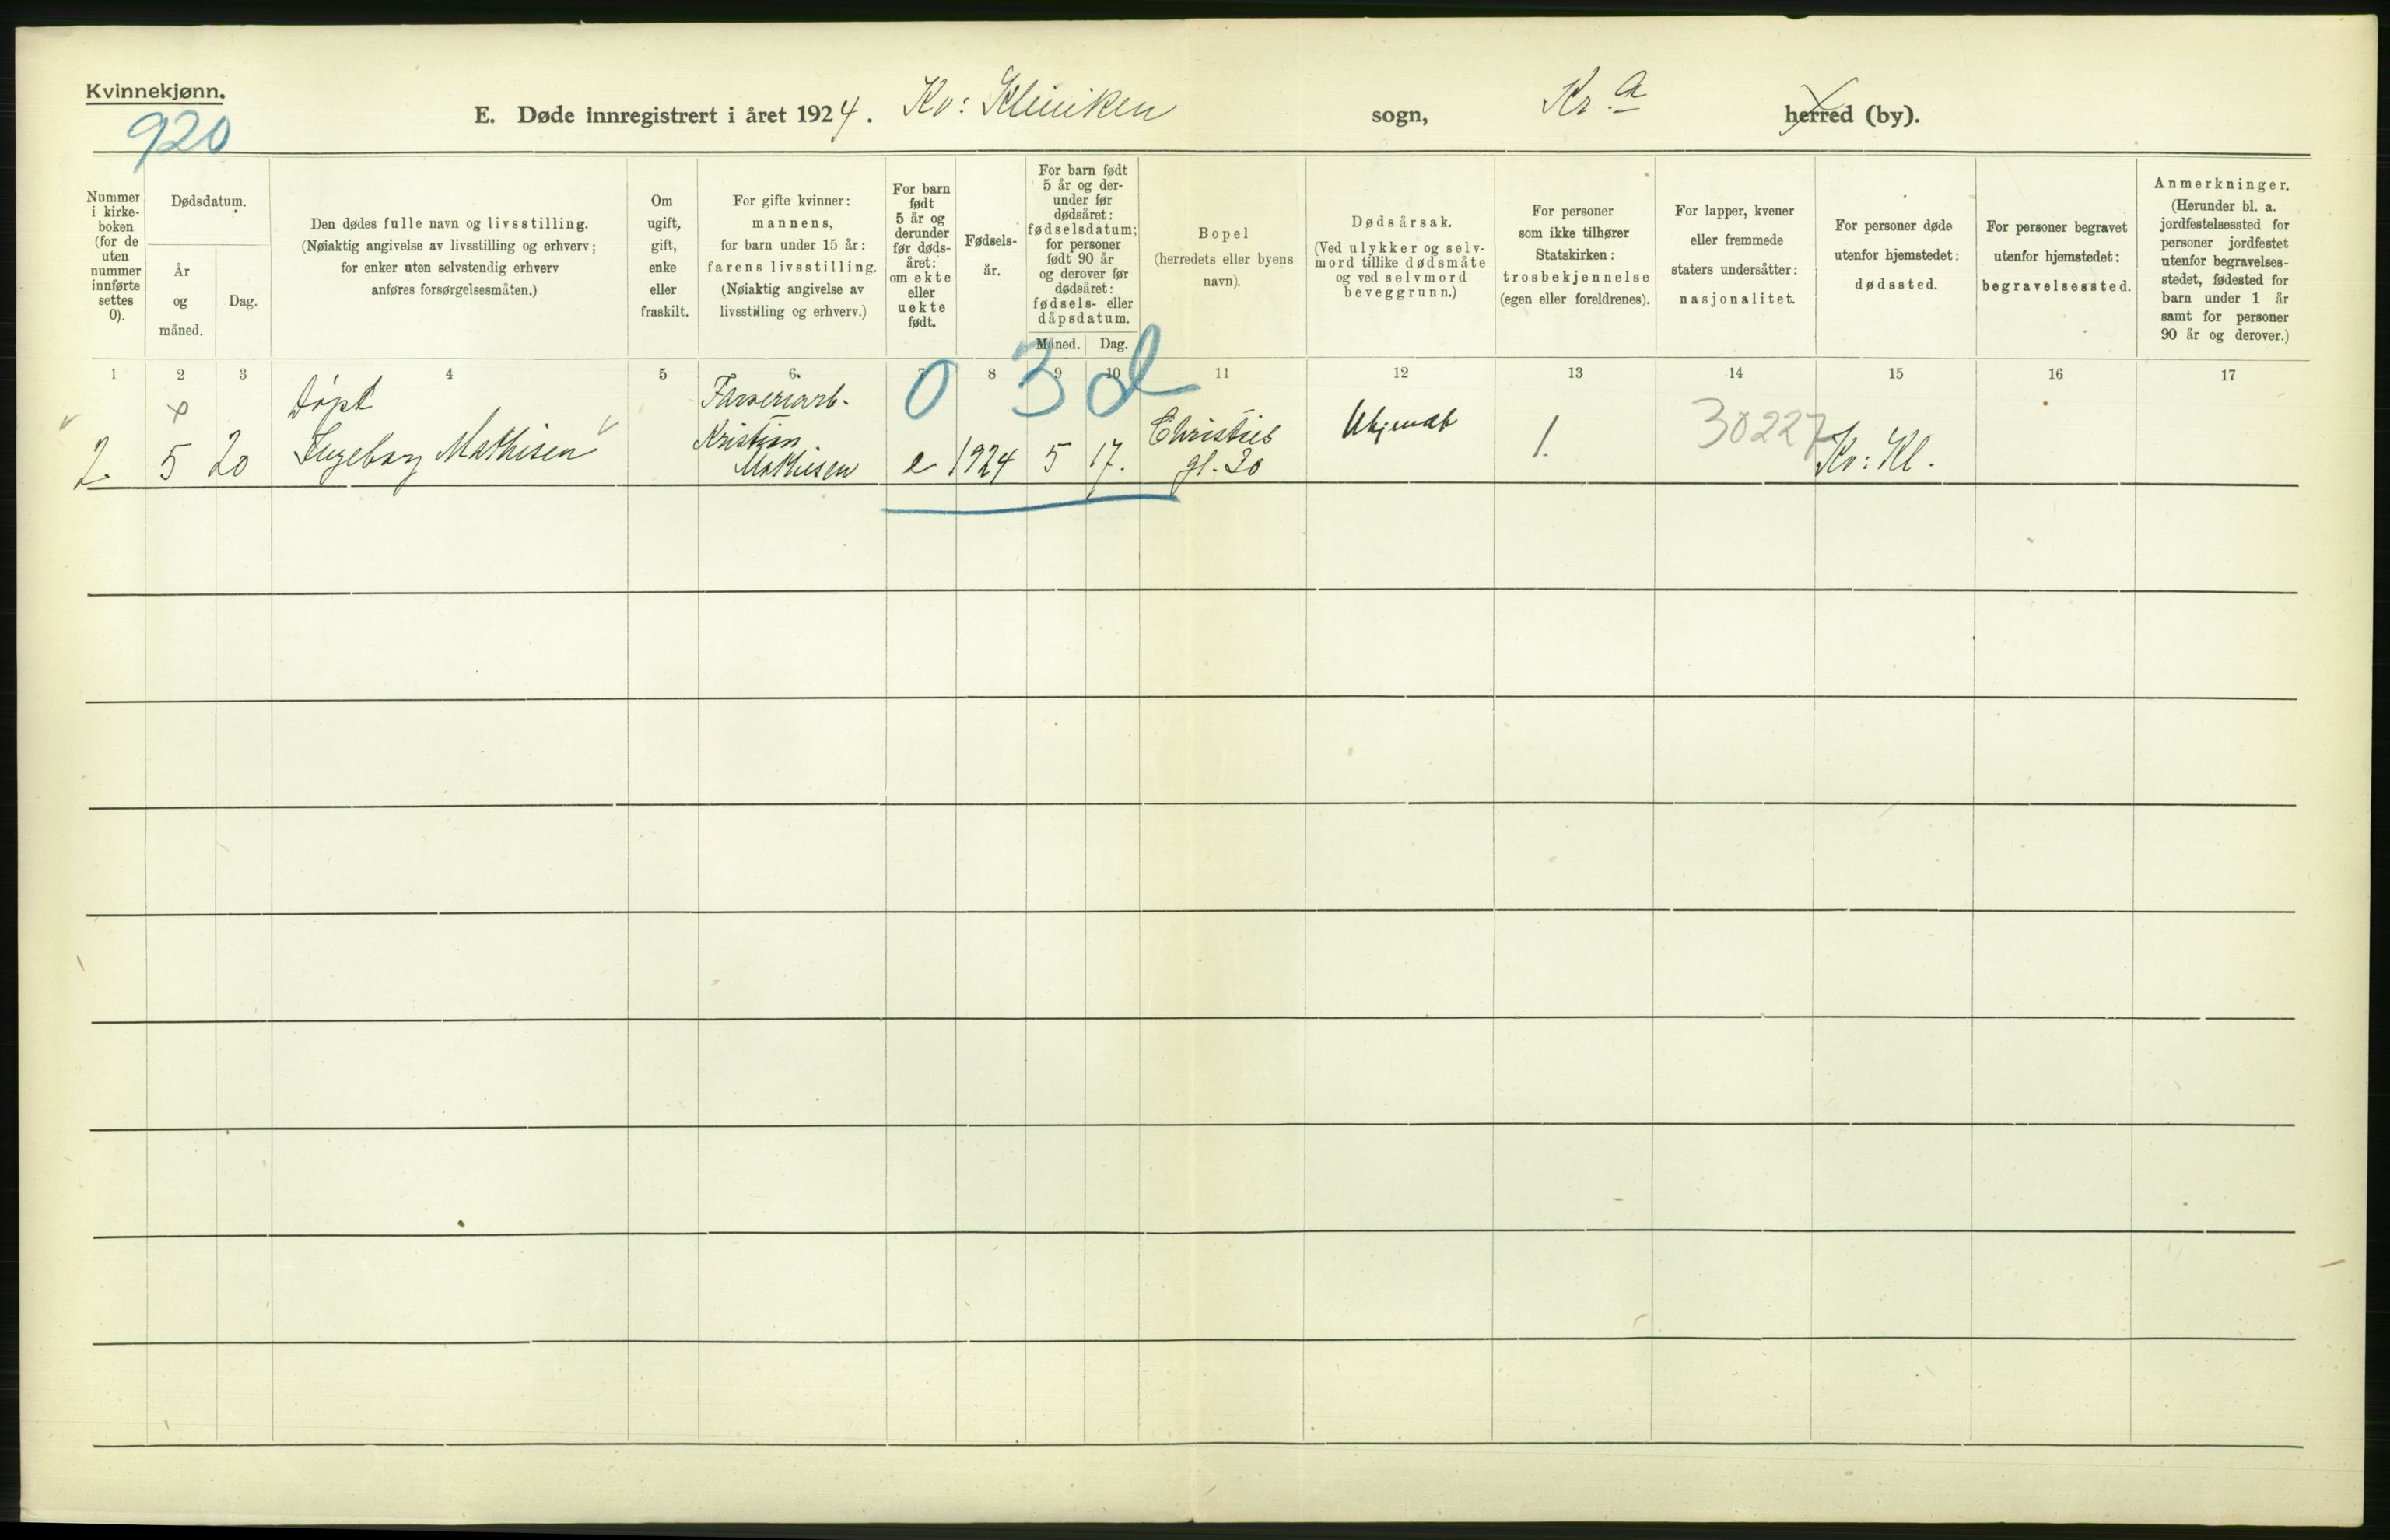 Kvinnekjønn.
920
E. Døde innregistrert i året 1924. Kv: Kliniken sogn, Kr.a herred (by).
Nummer i kirke-
boken
(for de
uten
nummer
innførte
settes
0).
Dødsdatum.
År
og
måned.
Dag.
Den dødes fulle navn og livsstilling.
(Nøiaktig angivelse av livsstilling og erhverv;
for enker uten selvstendig erhverv
anføres forsørgelsesmåten.)
Om
ugift,
gift,
enke
eller
fraskilt.
For gifte kvinner:
mannens,
for barn under 15 år:
farens livsstilling.
(Nøiaktig angivelse av
livsstilling og erhverv.)
For barn
født
5 år og
derunder
før døds-
året:
om ekte
eller
uekte
født.
Fødsels-
år.
For barn født
5 år og der-
under før
dødsåret:
fødselsdatum;
for personer
født 90 år
og derover før
dødsåret:
fødsels- eller
dåpsdatum.
Måned. Dag.
Bopel
(herredets eller byens
navn).
Dødsårsak.
(Ved ulykker og selv-
mord tillike dødsmåte
og ved selvmord
beveggrunn.)
For personer
som ikke tilhører
Statskirken:
trosbekjennelse
(egen eller foreldrenes).
For lapper, kvener
eller fremmede
staters undersåtter:
nasjonalitet.
For personer døde
utenfor hjemstedet:
dødssted.
For personer begravet
utenfor hjemstedet:
begravelsessted.
Anmerkninger.
(Herunder bl. a.
jordfestelsessted for
personer jordfestet
utenfor begravelses-
stedet, fødested for
barn under 1 år
samt for personer
90 år og derover.)
1 2 3 4 5 6 7 8 9 10 11 12 13 14 15 16 17
0 3 d
Døpt
Farveriarb.
2. 5 20 Ingeborg Mathisen
Kristian
Mathisen
e 1924 5 17.
Christies
gt. 30
Ukjendt
1.
30227
Kv: Kl.